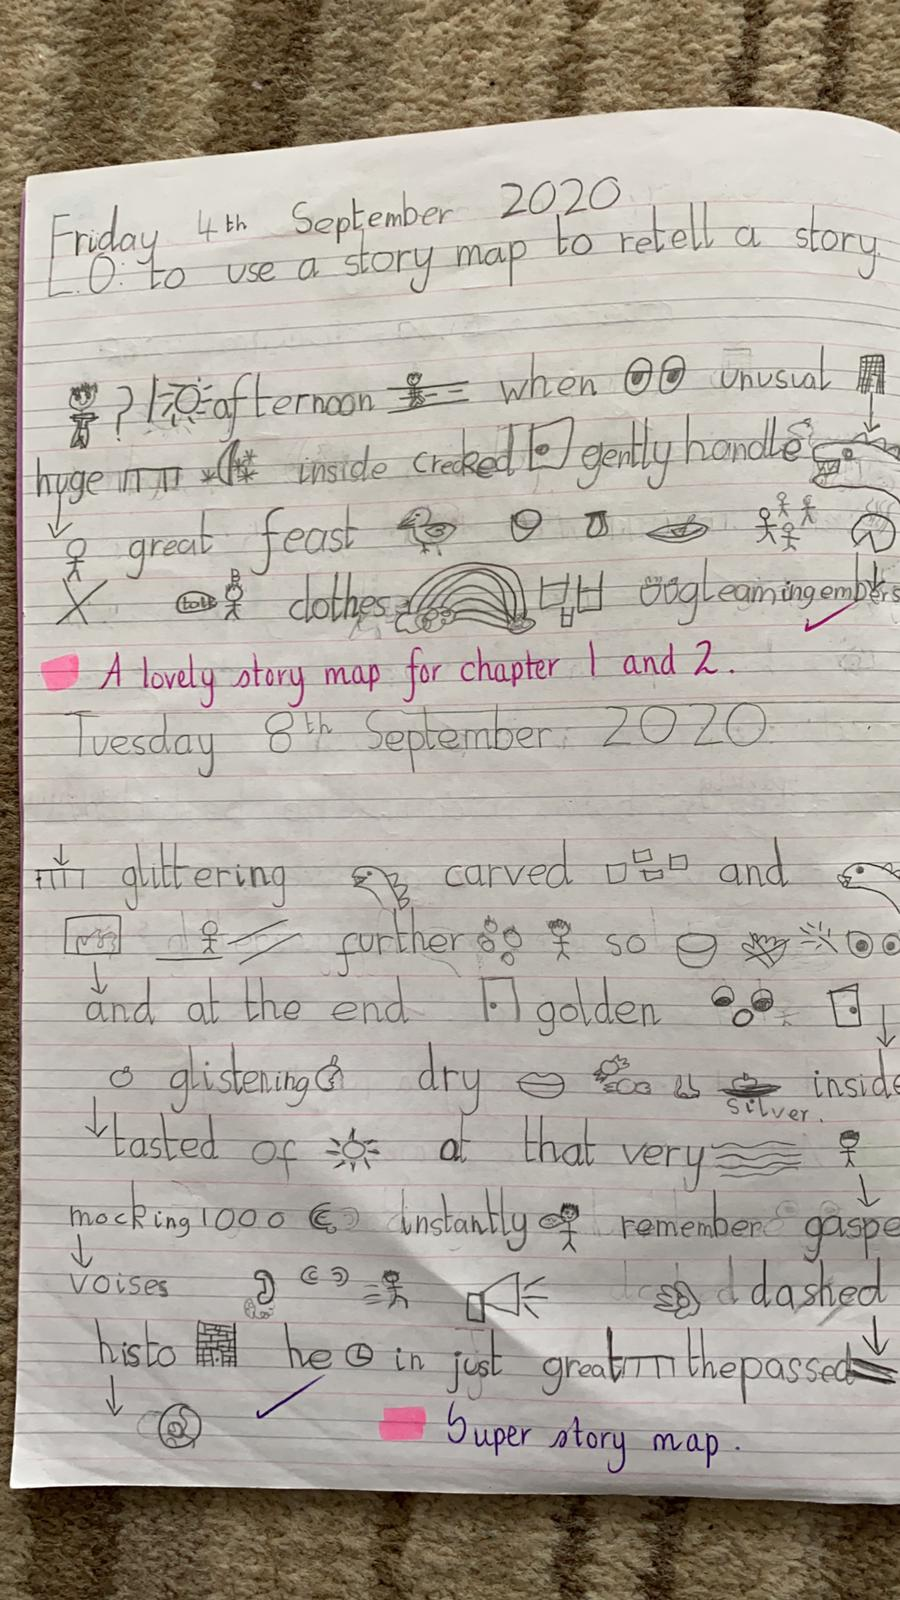 Friday 4th September 2020
L.O: to use a story map to retell a story.
? 1 afternoon when unusual
huge inside crecked gently handle
great feast
clothes gleaming embers
A lovely story map for chapter 1 and 2.
Tuesday 8th September 2020
glittering carved and
further so
and at the end golden
glistening dry inside
silver.
tasted of at that very
mocking 1000 instantly remember gaspe
voises dashed
histo he in just great the passed
Super story map.